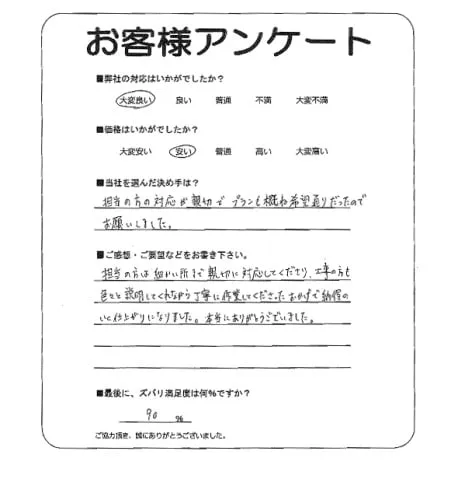 お客様アンケート
■弊社の対応はいかがでしたか？
大変良い 良い 普通 不満 大変不満
■価格はいかがでしたか？
大変安い 安い 普通 高い 大変高い
■当社を選んだ決め手は？
担当の方の対応が親切で プランも概ね希望通りだったので
お願いしました。
■ご感想・ご要望などをお書き下さい。
担当の方は細かい所まで親切に対応してくださり、工事の方も
色々と説明してくれながら丁寧に作業してくださったおかげで納得の
いく仕上がりになりました。本当にありがとうございました。
■最後に、ズバリ満足度は何％ですか？
90 ％
ご協力頂き、誠にありがとうございました。